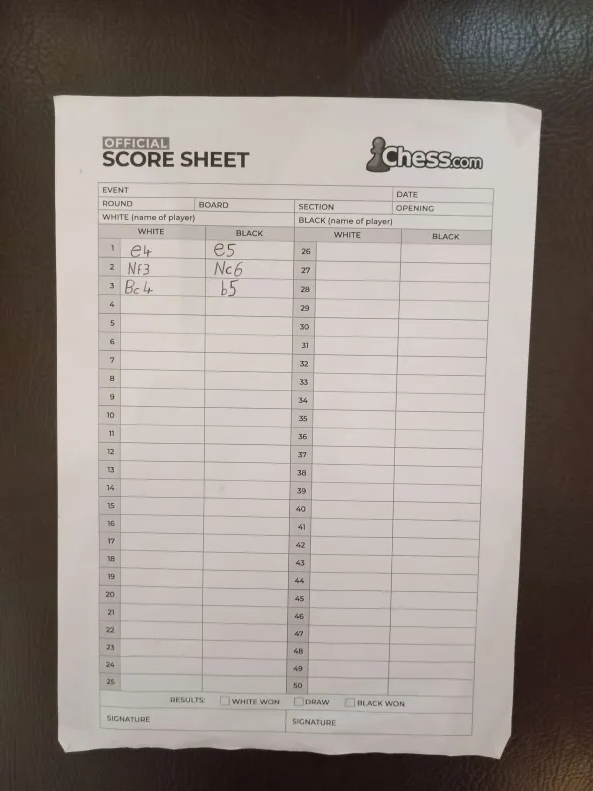 OFFICIAL
SCORE SHEET
Chess.com
EVENT DATE
ROUND BOARD SECTION OPENING
WHITE (name of player) BLACK (name of player)
WHITE BLACK WHITE BLACK
1 e4 e5 26
2 Nf3 Nc6 27
3 Bc4 b5 28
4 29
5 30
6 31
7 32
8 33
9 34
10 35
11 36
12 37
13 38
14 39
15 40
16 41
17 42
18 43
19 44
20 45
21 46
22 47
23 48
24 49
25 50
RESULTS: WHITE WON DRAW BLACK WON
SIGNATURE SIGNATURE